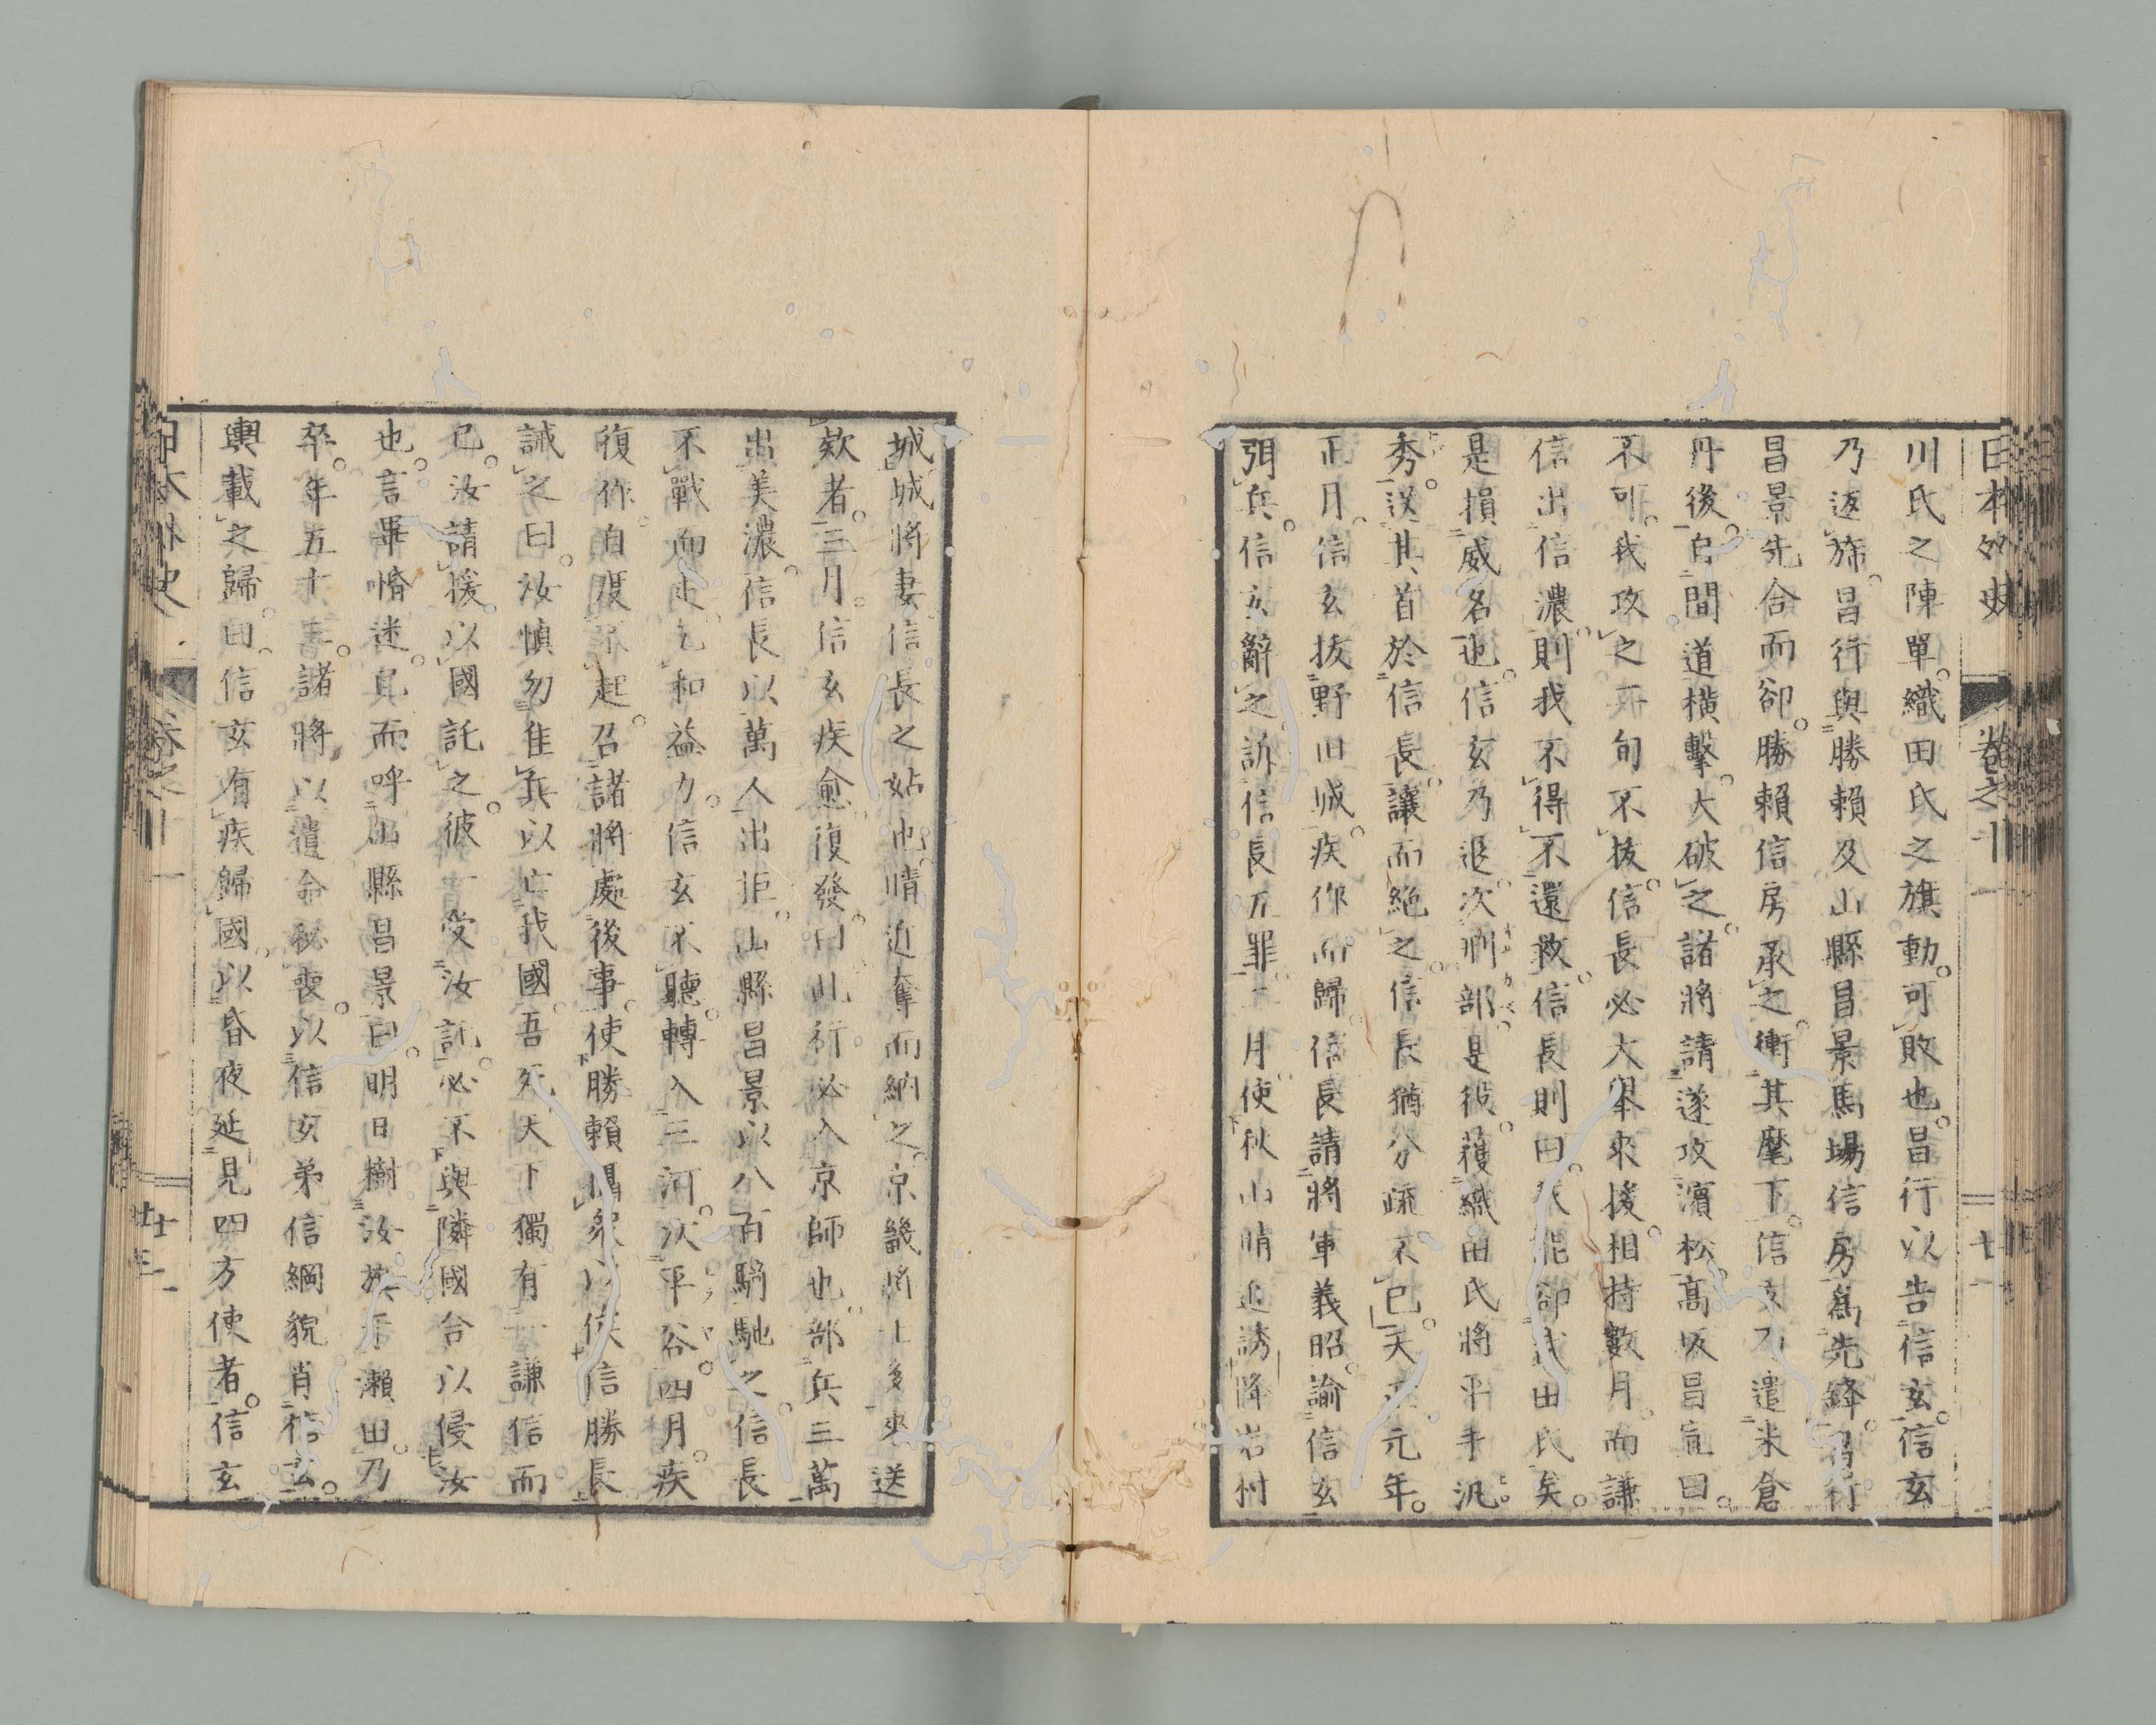 日本外史 卷之十一
川氏之陳單。織田氏之旗動。可敗也。昌行以告信玄。信玄
乃返旆。昌行與勝賴及山縣昌景馬場信房爲先鋒。昌行
昌景先合而卻。勝賴信房承之。衝其麾下。信玄乃遣米倉
丹後。自間道橫擊。大破之。諸將請遂攻濱松。高坂昌宣曰。
不可。我攻之再旬不拔。信長必大舉來援。相持數月。而謙
信出信濃。則我不得不還救。信長則曰。我能卻武田氏矣。
是損威名也。信玄乃退。次刑部。是役。獲織田氏將平手汎
秀。送其首於信長。讓而絕之。信長猶分疏不已。天正元年。
正月。信玄拔野田城。疾作而歸。信長請將軍義昭。諭信玄
弭兵。信玄辭之。訴信長五罪。二月使秋山晴近誘降岩村
城。城將妻信長之姑也。晴近奪而納之。京畿將士多來送
欵者。三月。信玄疾愈。復發。曰。此行必入京師也。部兵三萬
出美濃。信長以萬人出拒。山縣昌景以八百騎馳之。信長
不戰而走。乞和益力。信玄不聽。轉入三河。次平谷。四月。疾
復作。自度不起。召諸將處後事。使勝賴攝衆。以俟信勝長。
誡之曰。汝慎勿隹兵以亡我國。吾死天下獨有一謙信而
已。汝請援。以國託之。彼一受汝託。必不與隣國合以侵汝
也。言畢惛迷。見而呼山縣昌景曰。明日樹汝旗于瀨田。乃
卒。年五十三。諸將以遺命秘喪。以信玄弟信綱貌肖信玄。
輿載之歸。曰。信玄有疾歸國。以昏夜延見四方使者。信玄
日本外史 卷之十一